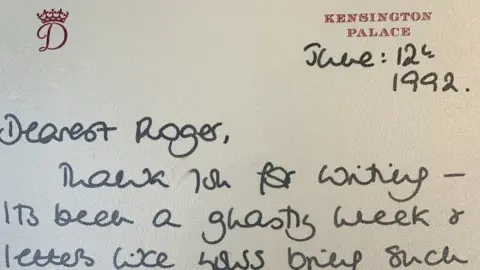 D
KENSINGTON
PALACE
June: 12th
1992.
Dearest Roger,
Thank you for writing –
Its been a ghastly week &
letters like yours bring such